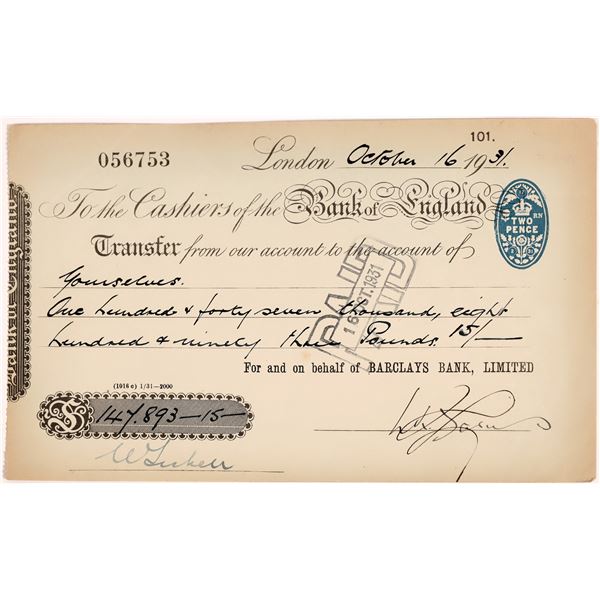 101.
056753 London October 16 1931.
To the Cashiers of the Bank of England
TWO PENCE
Transfer from our account to the account of
Yourselves.
One hundred & forty seven thousand, eight
hundred & ninety three Pounds. 15/-
PAID
16 OCT. 1931
For and on behalf of BARCLAYS BANK, LIMITED
(1016 c) 1/31-2000
£ 147.893-15-
Bank of England